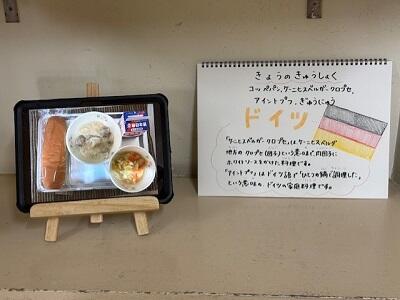 きょうのきゅうしょく
コッペパン、ケーニヒスベルガークロプセ、
アイントプフ、ぎゅうにゅう
ドイツ
「ケーニヒスベルガークロプセ」は、ケーニヒスベルグ
地方のクロプセ(団子)という意味で、肉団子に
ホワイトソースをかけた料理です。
「アイントプフ」はドイツ語で「ひとつの鍋で調理した」
という意味の、ドイツの家庭料理です。